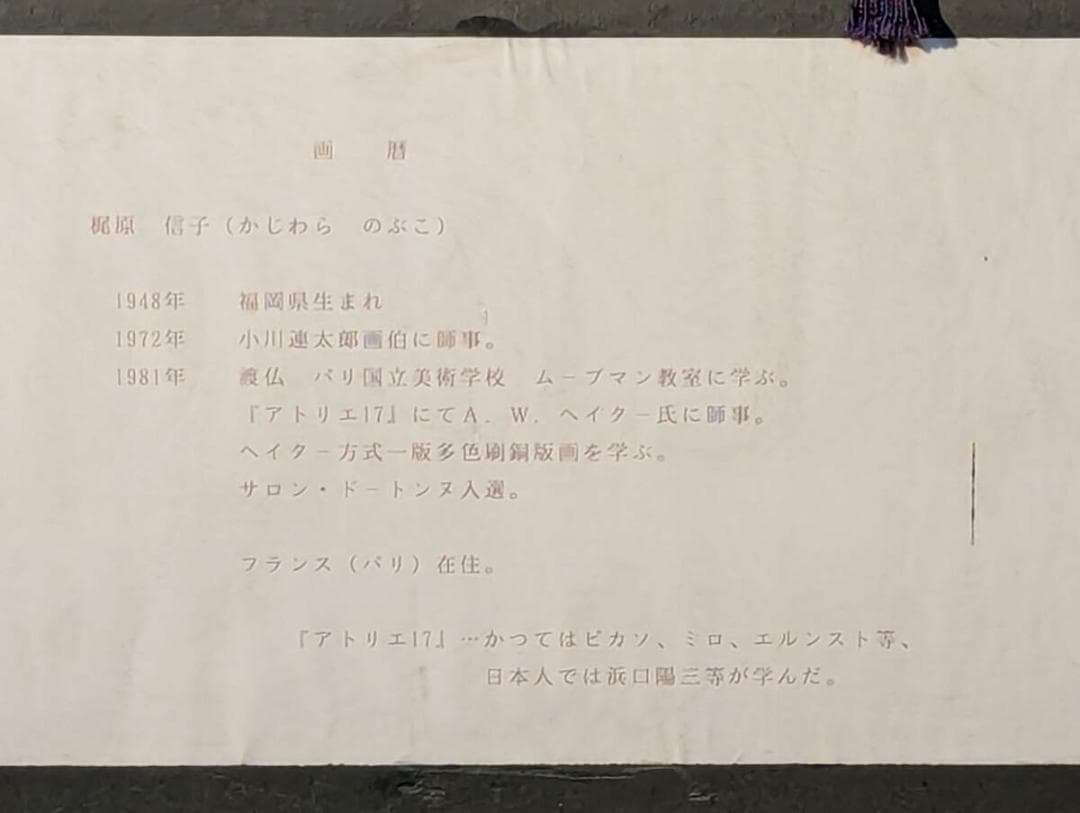 画　暦
梶原　信子（かじわら　のぶこ）
1948年　福岡県生まれ
1972年　小川連太郎画伯に師事。
1981年　渡仏　パリ国立美術学校　ムーブマン教室に学ぶ。
『アトリエ17』にてA．W．ヘイター氏に師事。
ヘイター方式一版多色刷銅版画を学ぶ。
サロン・ドートンヌ入選。
フランス（パリ）在住。
『アトリエ17』…かつてはピカソ、ミロ、エルンスト等、
日本人では浜口陽三等が学んだ。